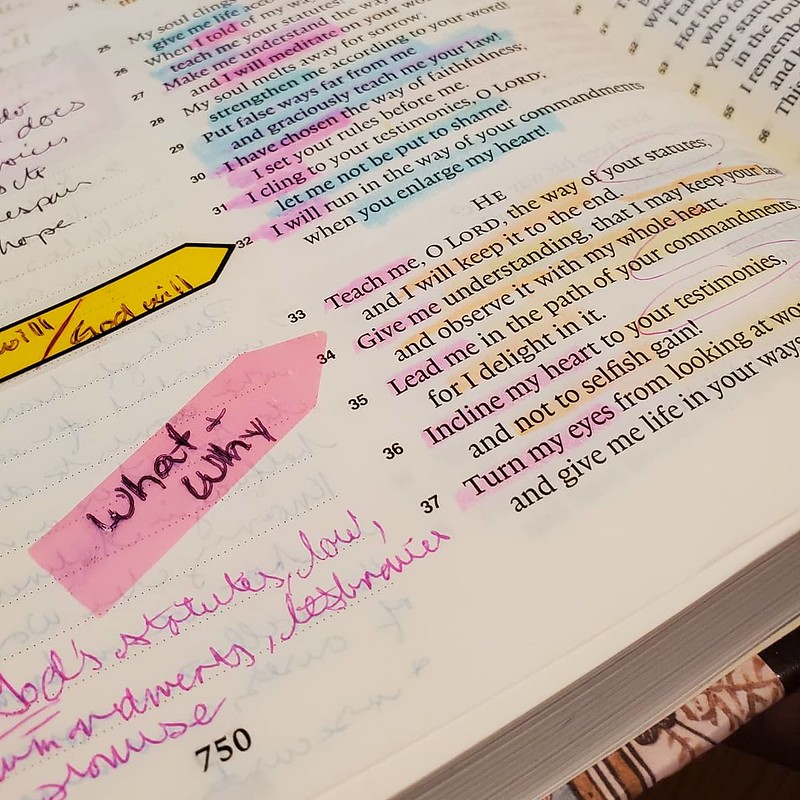 25 My soul cling
give me life acc
26 When I told of my way
teach me your statutes!
27 Make me understand the way
and I will meditate on your wo
28 My soul melts away for sorrow;
strengthen me according to your word!
29 Put false ways far from me
and graciously teach me your law!
30 I have chosen the way of faithfulness;
I set your rules before me.
31 I cling to your testimonies, O LORD;
let me not be put to shame!
32 I will run in the way of your commandments
when you enlarge my heart!
HE
33 Teach me, O LORD, the way of your statutes;
and I will keep it to the end.
34 Give me understanding, that I may keep your law
and observe it with my whole heart.
35 Lead me in the path of your commandments,
for I delight in it.
36 Incline my heart to your testimonies,
and not to selfish gain!
37 Turn my eyes from looking at wo
and give me life in your ways
does
hope.
will / God will
what +
why
God's statutes, law,
testimonies
promise
750
52
53 Hot in
who fo
54 Your statu
in the hou
55 I remembe
and k
56 This